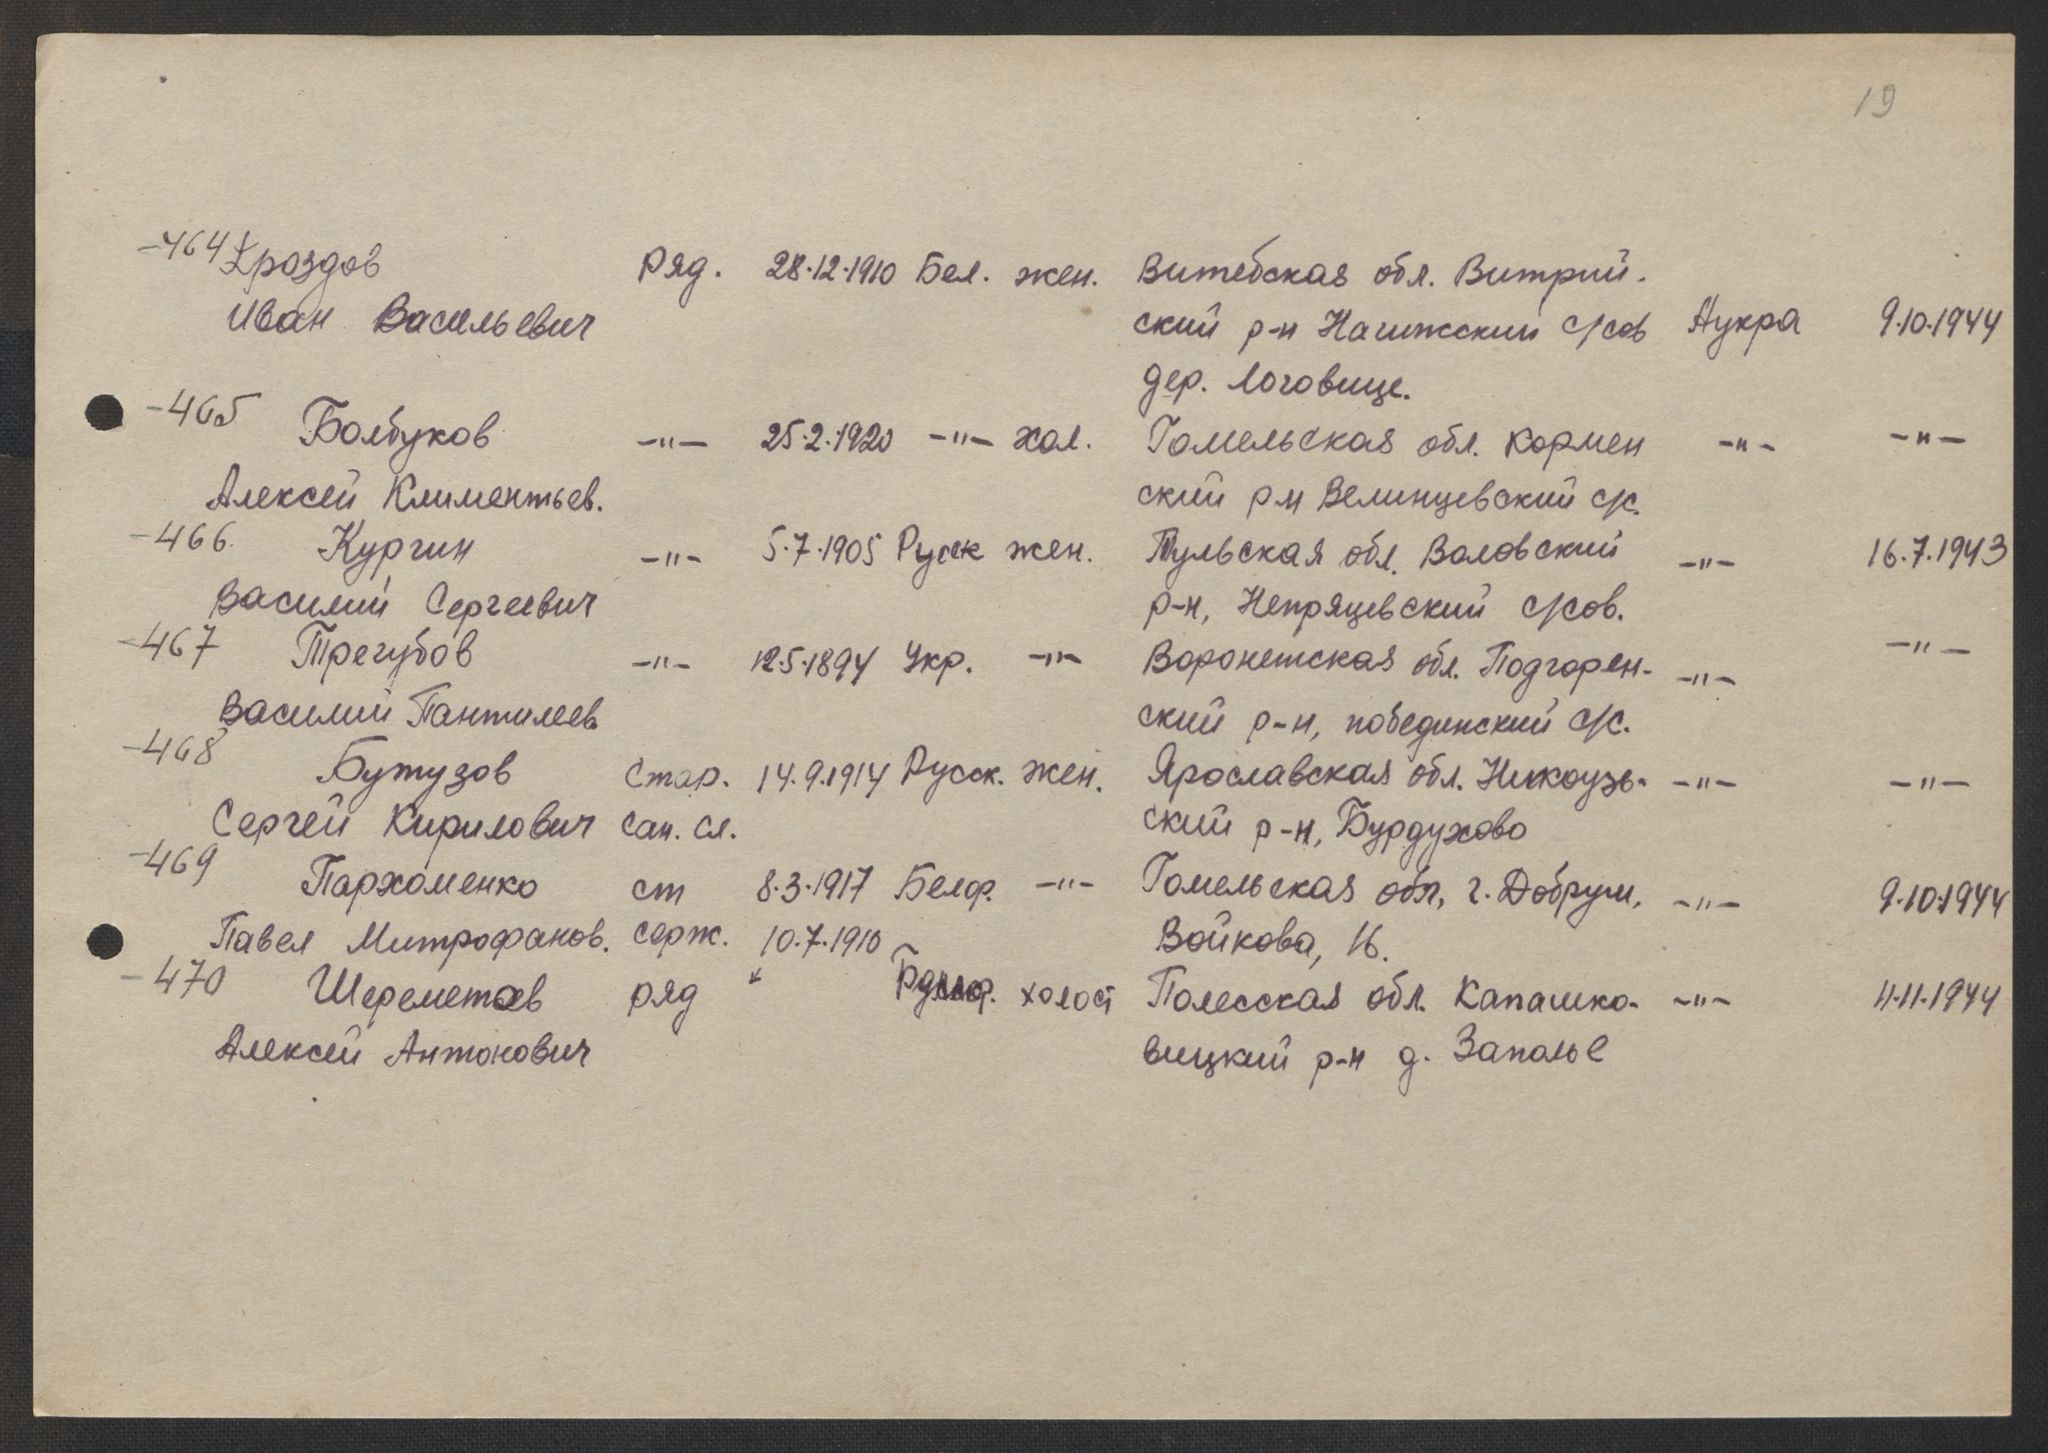 19
-464 Дроздов ряд. 28.12.1910 Бел. жен. Витебская обл. Витрий-
Иван Васильевич ский р-н Нагижский с/сов Аукра 9.10.1944
дер. Логовище.
-465 Болбуков -"- 25.2.1920 -"- хол. Гомельская обл. Кормен -"- -"-
Алексей Климентьев. ский р-н Велинцевский с/с.
-466 Кургин -"- 5.7.1905 Русск жен. Тульская обл. Воловский -"- 16.7.1943
Василий Сергеевич р-н, Непряцевский с/сов.
-467 Трегубов -"- 12.5.1894 Укр. -"- Воронетская обл. Подгорен- -"- -"-
Василий Пантилеев ский р-н, побединский с/с.
-468 Бутузов Стар. 14.9.1914 Русск. жен. Ярославская обл. Никоузь- -"- -"-
Сергей Кирилович сан. сл. ский р-н, Бурдухово
-469 Пархоменко ст 8.3.1917 Белор. -"- Гомельская обл, г. Добруш, -"- 9.10.1944
Павел Митрофанов. серж. 10.7.1910 Войкова, 16.
-470 Шереметов ряд холост Полесская обл. Капашко- -"- 11.11.1944
Алексей Антонович вицкий р-н д. Заполье